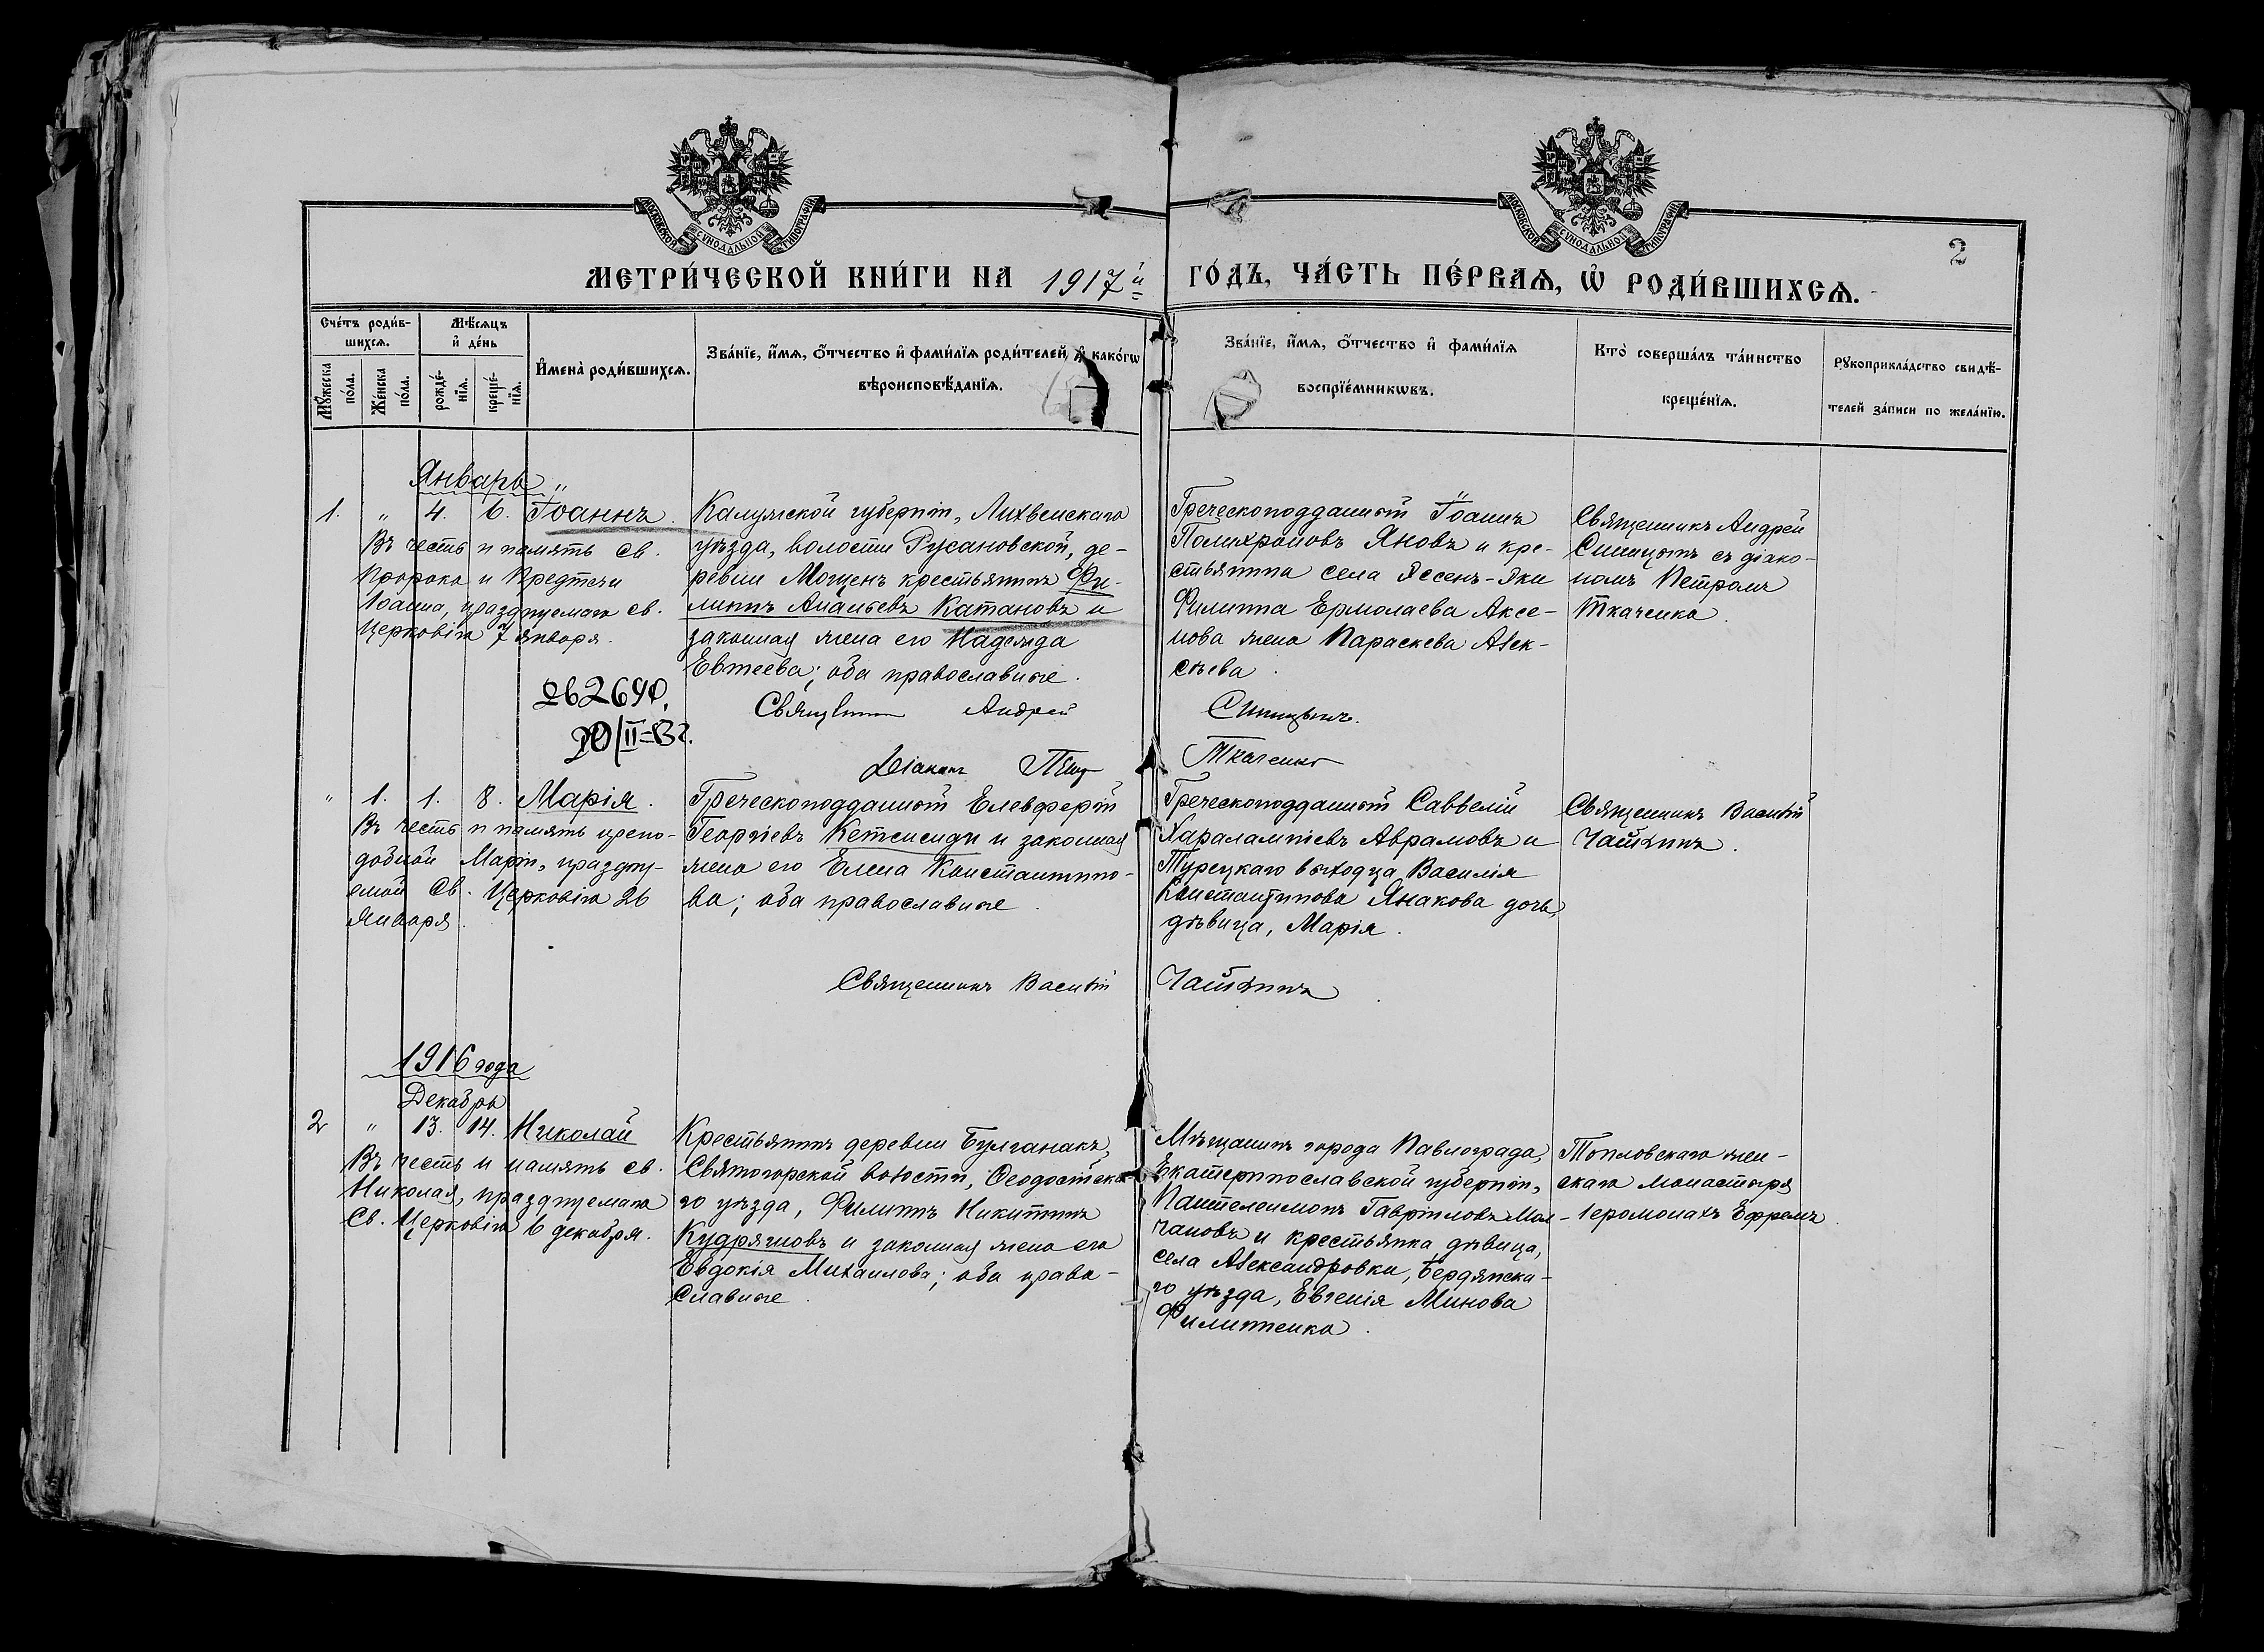 МОСКОВСКОЙ СѴНОДАЛЬНОЙ ТИПОГРАФІИ
МОСКОВСКОЙ СѴНОДАЛЬНОЙ ТИПОГРАФІИ
2
МЕТРИ́ЧЕСКОЙ КНИ́ГИ НА 1917й
ГО́ДЪ, ЧА́СТЬ ПЕ́РВАѦ, Ѡ҆ РОДИ́ВШИХСѦ.
Сче́тъ роди́в-
шихсѧ.
Мꙋ́жеска по́ла.
Же́нска по́ла.
Мѣ́сѧцъ
и҆ де́нь
рожде́-
нїѧ.
креще́-
нїѧ.
И҆мена̀ роди́вшихсѧ.
Зва́нїе, и҆́мѧ, ѻ҆́тчество и҆ фами́лїѧ роди́телей, и҆ како́гѡ
вѣроисповѣ́данїѧ.
Зва́нїе, и҆́мѧ, ѻ҆́тчество и҆ фами́лїѧ
воспрїе́мникѡвъ.
Кто̀ соверша́лъ та́инство
креще́нїѧ.
Рꙋкоприкла́дство свидѣ́-
телей за́писи по жела́нїю.
Январь
1. " 4. 6. Іоаннъ.
Въ честь и память св.
Пророка и Предтечи
Іоанна, празднуемаго св.
Церковію 7 января.
262690.
20/II=32.
Калужской губерніи, Лихвенскаго
уѣзда, волости Русановской, де-
ревни Мощенъ крестьянинъ Фи-
липпъ Ананьевъ Катановъ и
законная жена его Надежда
Евтеева; оба православные.
Священникъ Андрей
Діаконъ Петр
Греческоподданный Іоаннъ
Полихроновъ Яновъ и кре-
стьянина села Ясенъ-Яки
Филиппа Ермолаева Аксе-
нова жена Параскева Алек-
сѣева.
Синицынъ.
Ткаченко
Священникъ Андрей
Синицынъ съ діако-
номъ Петромъ
Ткаченко.
" 1. 1. 8. Марія.
Въ честь и память препо-
добной Маріи, праздну-
емой Св. Церковію 26
Января.
Греческоподданный Елевферій
Георгіевъ Кетсисиди и законная
жена его Елена Константино-
ва; оба православные.
Священникъ Василій
Греческоподданный Саввелій
Харалампіевъ Аврамовъ и
Турецкаго выходца Василія
Константинова Янакова дочь,
дѣвица, Марія.
Чайкинъ
Священникъ Василій
Чайкинъ.
1916 года
Декабрь
2 " 13. 14. Николай
Въ честь и память св.
Николая, празднуемаго
Св. Церковію 6 декабря.
Крестьянинъ деревни Булганакъ,
Святогорской волости, Ѳеодосійска-
го уѣзда, Филиппъ Никитинъ
Кудряшовъ и законная жена его
Евдокія Михаилова; оба право-
славные.
Мѣщанинъ города Павлограда,
Екатеринославской губерніи,
Пантелеимонъ Гавріиловъ Мол-
чановъ и крестьянка, дѣвица,
села Александровки, Бердянска-
го уѣзда, Евгенія Минова
Филипенко.
Топловскаго жен-
скаго монастыря
Іеромонахъ Ефремъ.